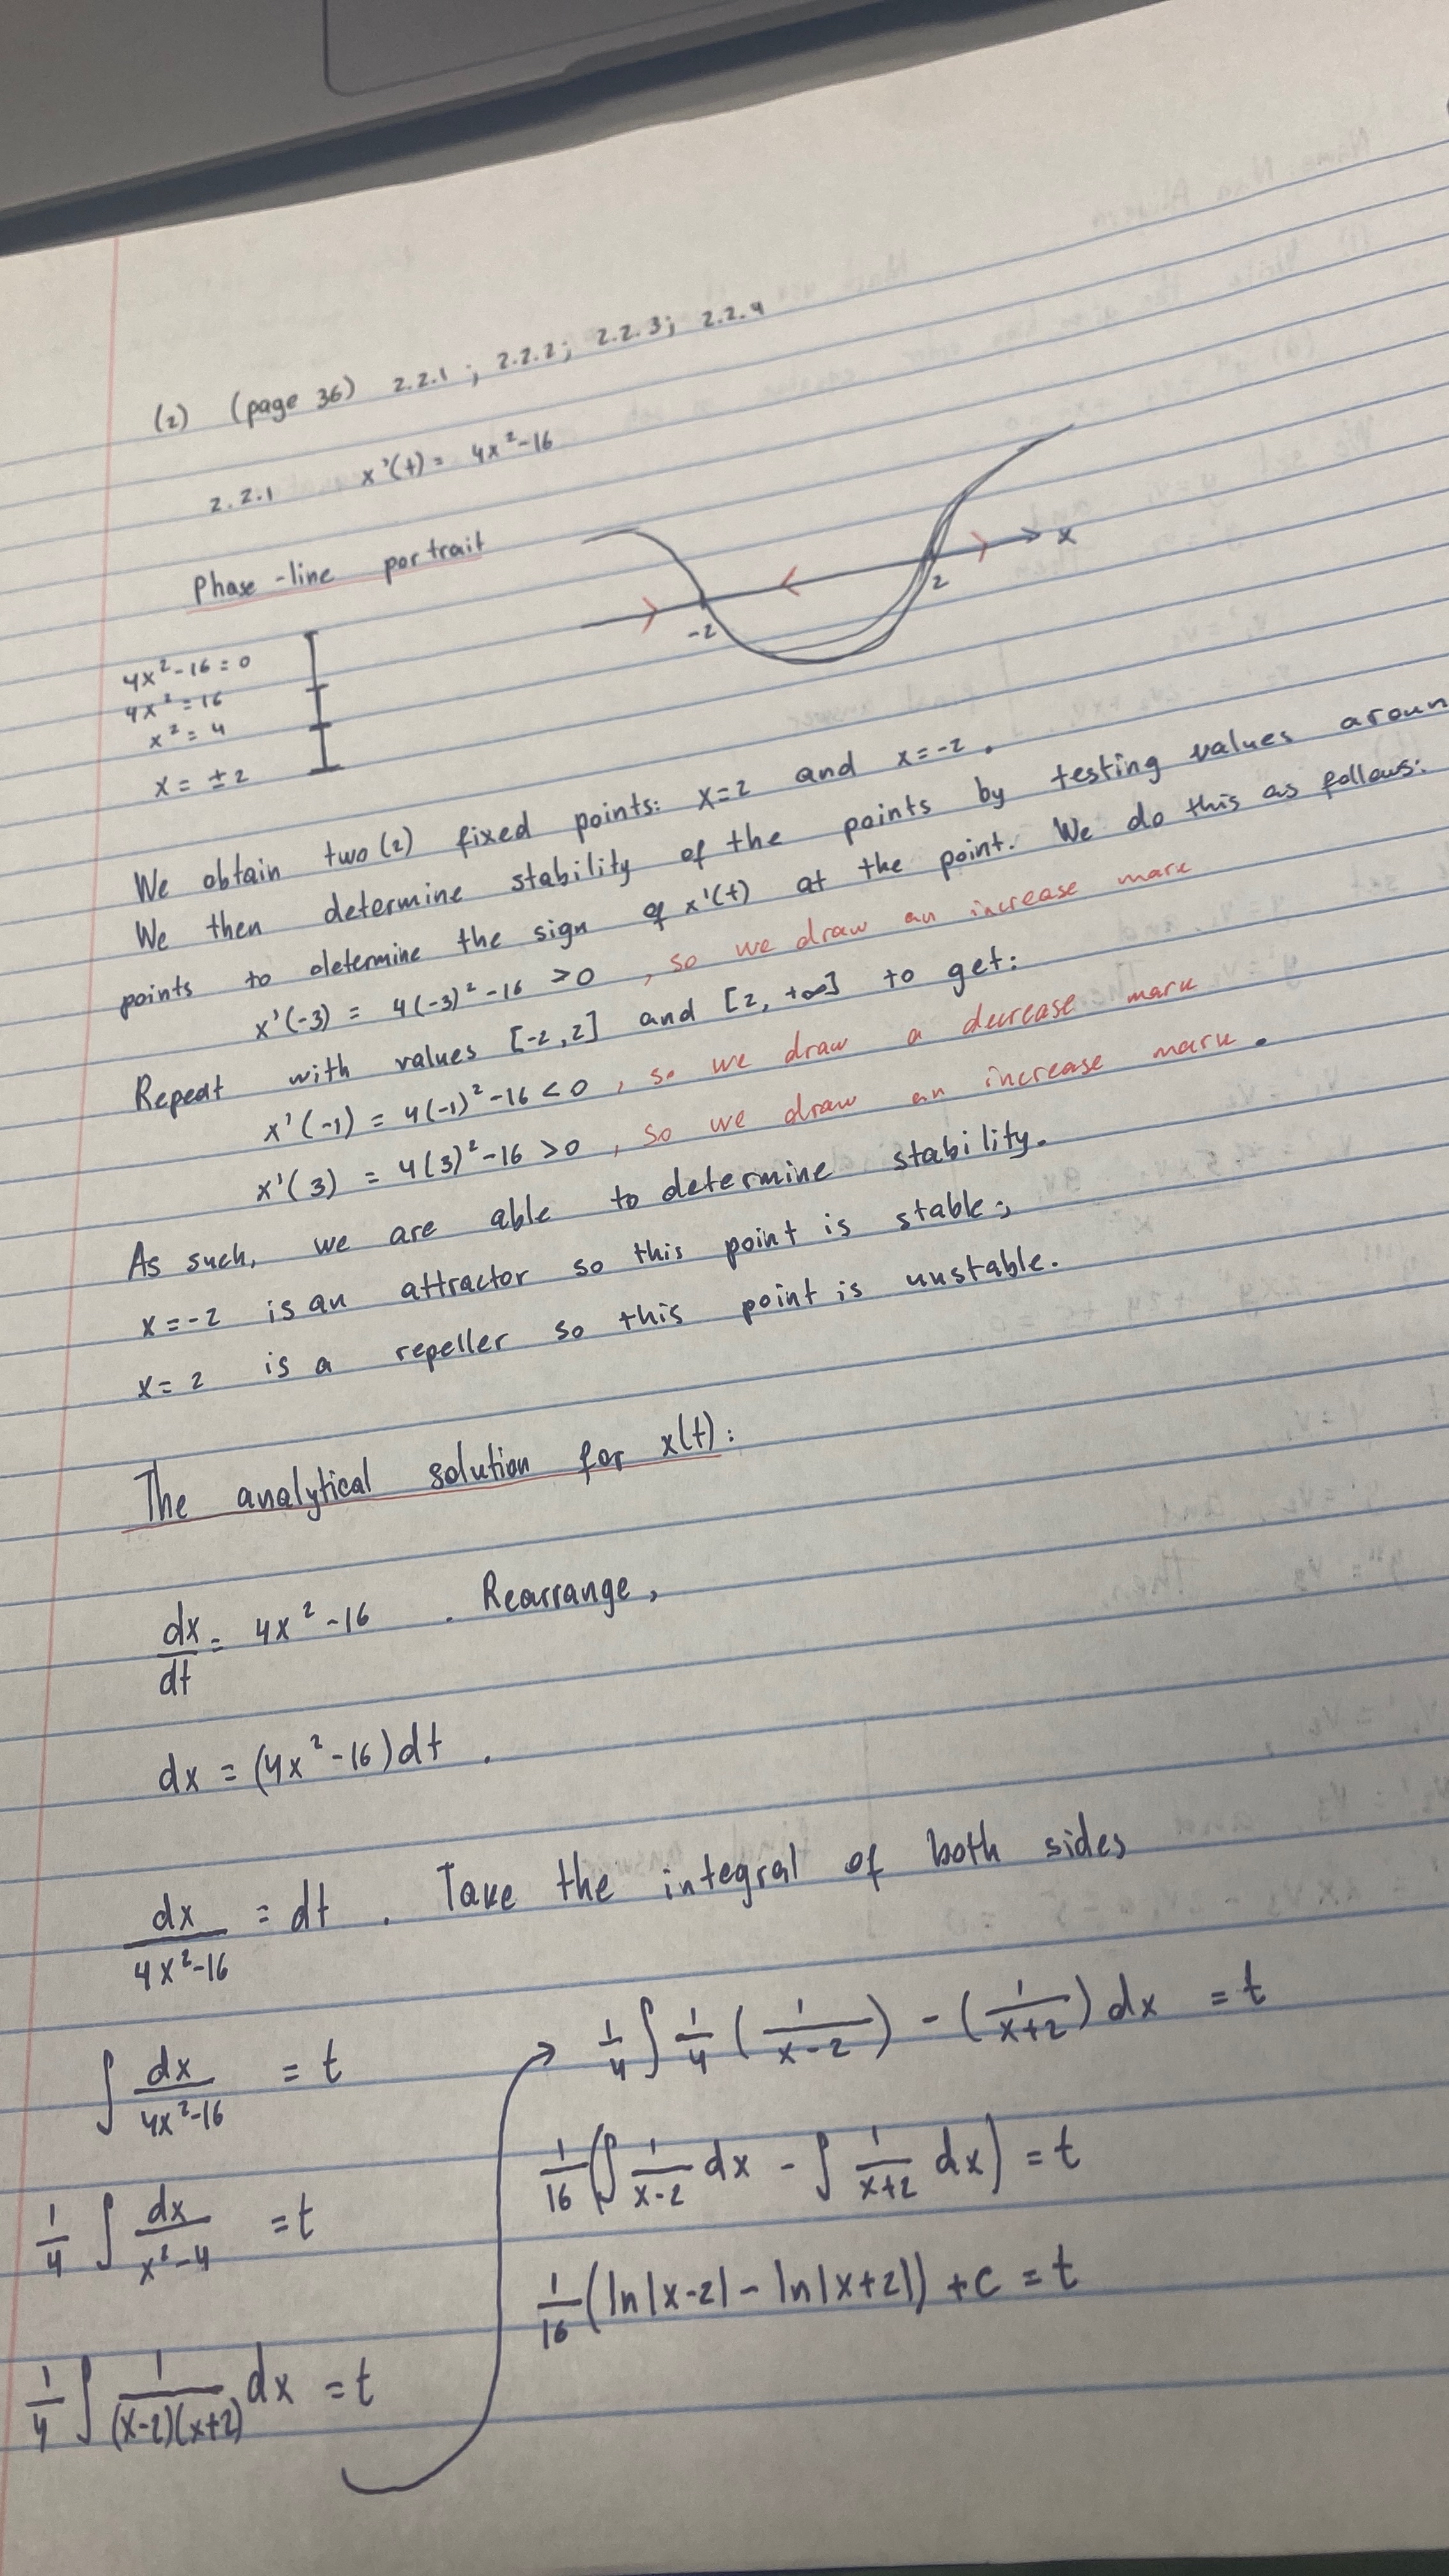 (2) (page 36) 2.2.1 ; 2.2.2; 2.2.3; 2.2.4
2.2.1 x'(t) = 4x²-16
Phase-line portrait
x
-2
2
4x²-16=0
4x²=16
x²=4
x=±2
We obtain two(2) fixed points: x=2 and x=-2.
We then determine stability of the points by testing values aroun
points to determine the sign of x'(t) at the point. We do this as follows:
x'(-3) = 4(-3)²-16 >0, so we draw an increase mark
Repeat with values [-2,2] and [2,+∞] to get:
x'(-1) = 4(-1)²-16<0, so we draw a decrease mark
x'(3) = 4(3)²-16>0, so we draw an increase mark.
As such, we are able to determine stability.
x=-2 is an attractor so this point is stable;
x=2 is a repeller so this point is unstable.
The analytical solution for x(t):
dx/dt = 4x²-16. Rearrange,
dx = (4x²-16)dt.
dx/(4x²-16) = dt. Take the integral of both sides
∫ dx/(4x²-16) = t
1/4 ∫ dx/(x²-4) = t
1/4 ∫ 1/((x-2)(x+2)) dx = t
1/4 ∫ 1/4 (1/(x-2)) - (1/(x+2)) dx = t
1/16 (∫ 1/(x-2) dx - ∫ 1/(x+2) dx) = t
1/16 (ln|x-2| - ln|x+2|) + c = t